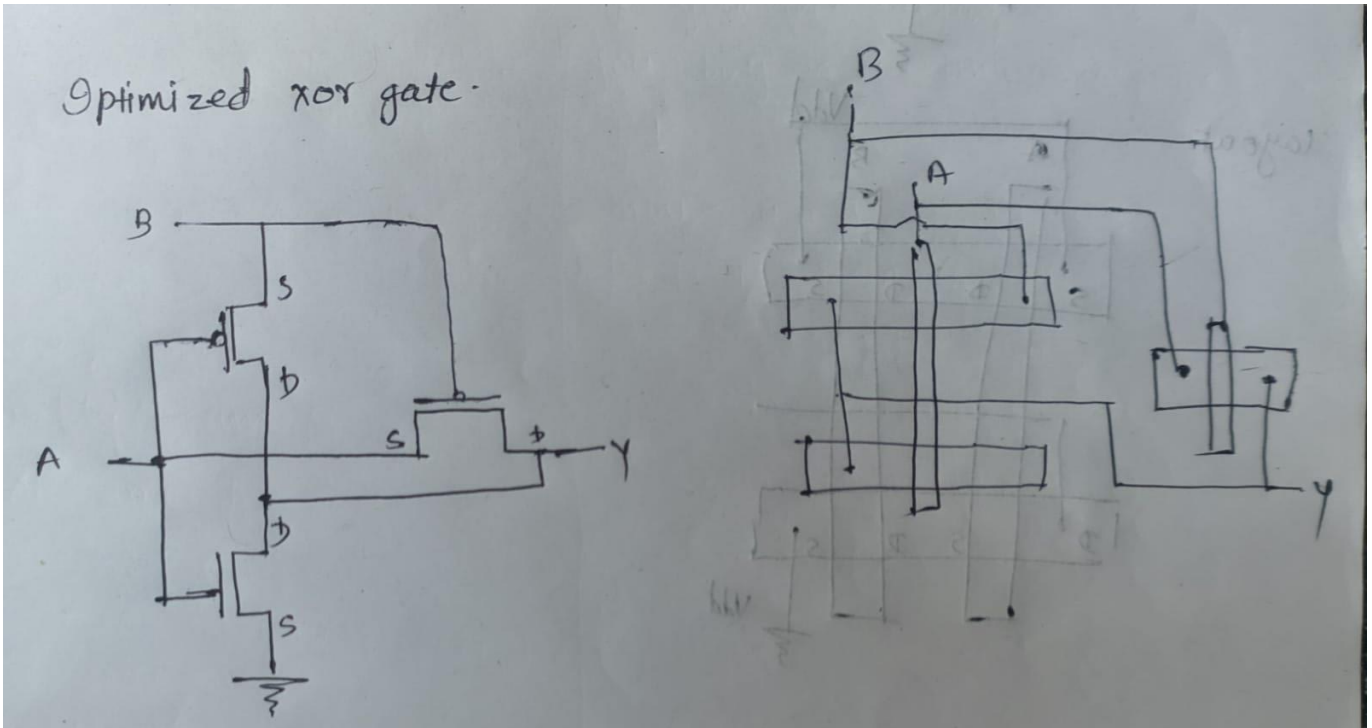 Optimized xor gate.
B
S
D
A
S
D
Y
D
S
B
A
Y